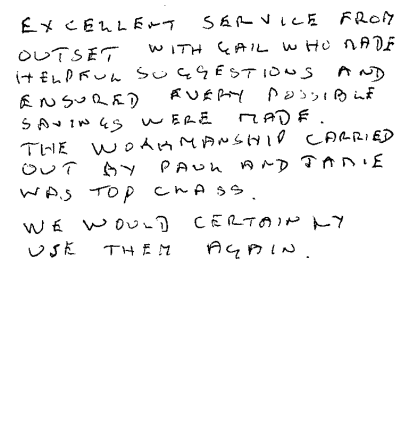 EXCELLENT SERVICE FROM
OUTSET WITH GAIL WHO MADE
HELPFUL SUGGESTIONS AND
ENSURED EVERY POSSIBLE
SAVINGS WERE MADE.
THE WORKMANSHIP CARRIED
OUT BY PAUL AND JAMIE
WAS TOP CLASS.
WE WOULD CERTAINLY
USE THEM AGAIN.